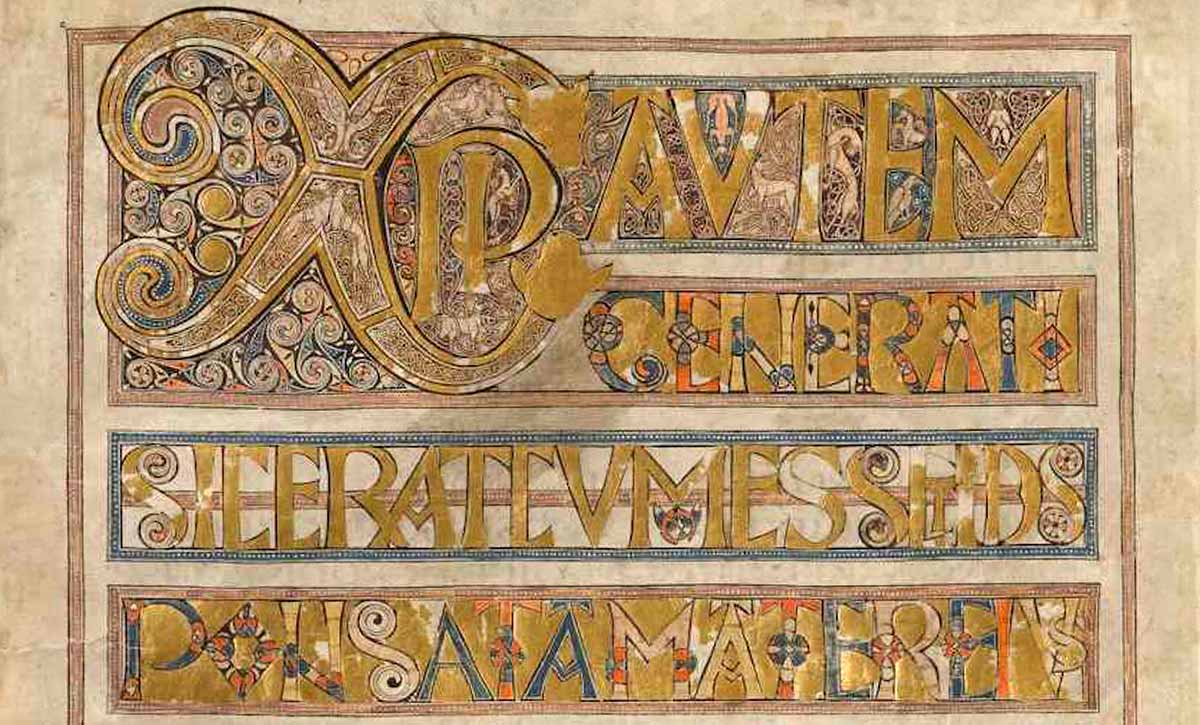 XPI AVTEM
GENERATIO
SIC ERAT CVM ESSET DIS
PONSATA MATER EIVS